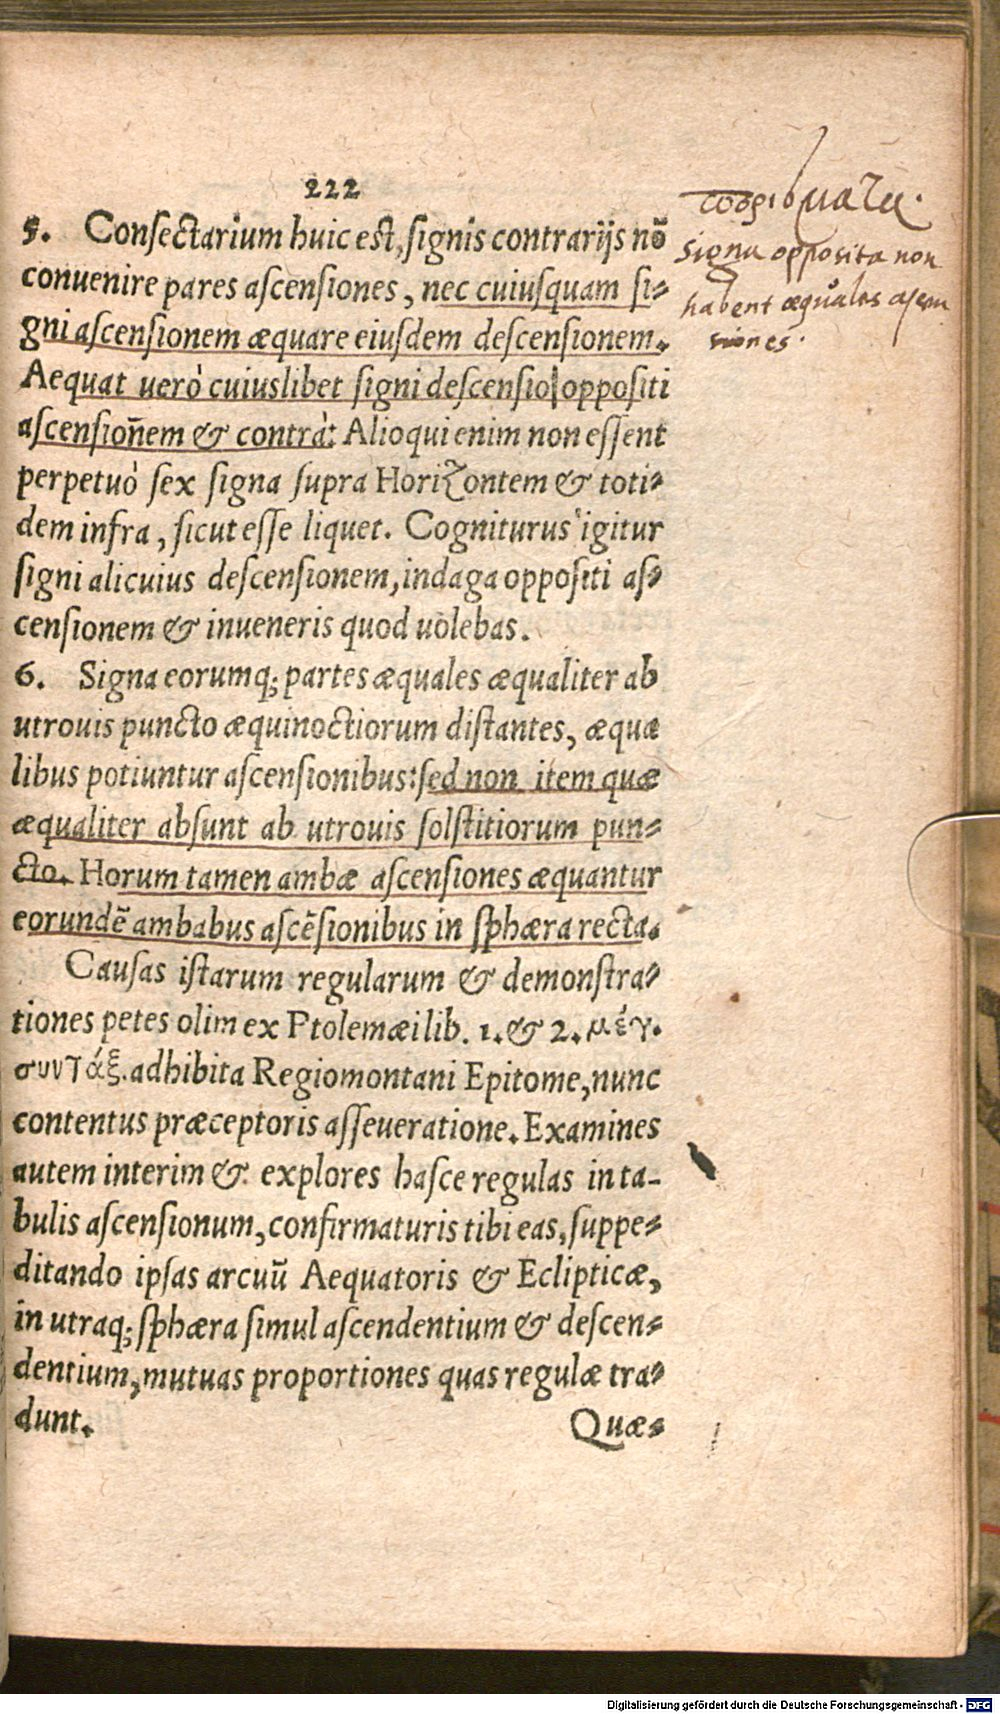 222
5. Consectarium huic est, signis contrarijs nō
convenire pares ascensiones, nec cuiusquam si-
gni ascensionem æquare eiusdem descensionem.
Aequat uerò cuiuslibet signi descensio oppositi
ascensionem & contrà: Alioqui enim non essent
perpetuò sex signa supra Horizontem & toti-
dem infra, sicut esse liquet. Cogniturus igitur
signi alicuius descensionem, indaga oppositi as-
censionem & inueneris quod uolebas.
6. Signa eorumq; partes æquales æqualiter ab
utrouis puncto æquinoctiorum distantes, æqua
libus potiuntur ascensionibus: sed non item quæ
æqualiter absunt ab utrouis solstitiorum pun-
cto. Horum tamen ambæ ascensiones æquantur
eorundē ambabus ascēsionibus in sphæra recta.
Causas istarum regularum & demonstra-
tiones petes olim ex Ptolemæi lib. 1. & 2. μέγ.
συντάξ. adhibita Regiomontani Epitome, nunc
contentus præceptoris asseueratione. Examines
autem interim & explores hasce regulas in ta-
bulis ascensionum, confirmaturis tibi eas, suppe-
ditando ipsas arcuū Aequatoris & Eclipticæ,
in utraq; sphæra simul ascendentium & descen-
dentium, mutuas proportiones quas regulæ tra-
dunt.
Quæ-
Signa opposita non
habent æquales ascen
siones.
Digitalisierung gefördert durch die Deutsche Forschungsgemeinschaft - DFG